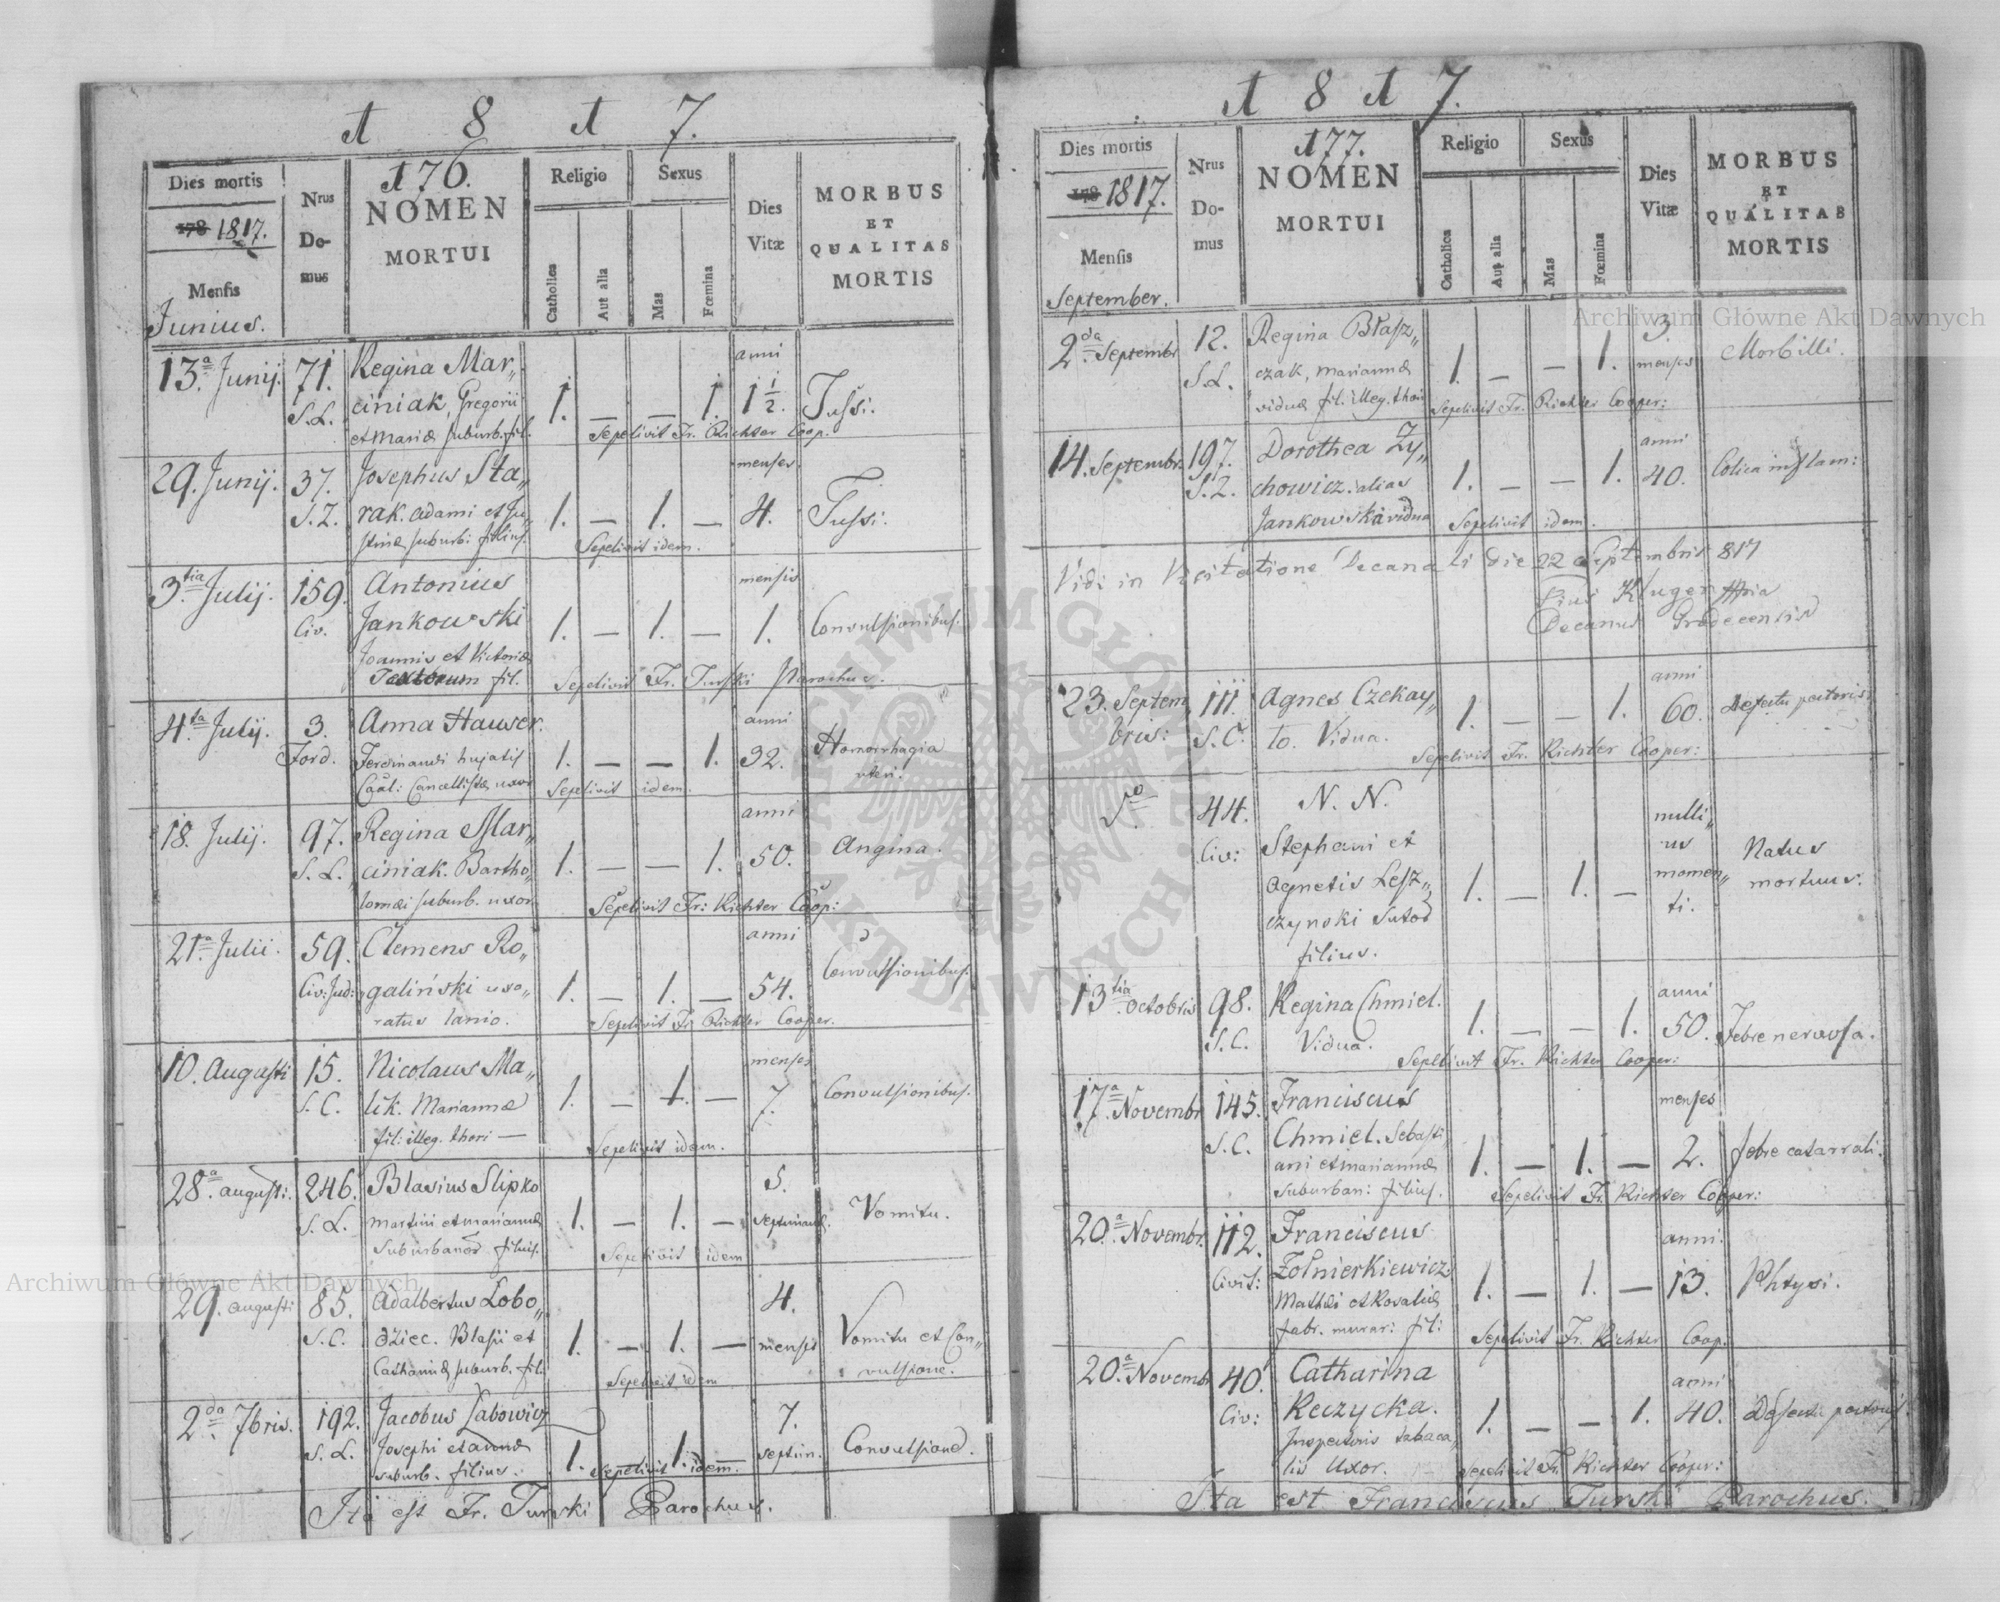 1 8 1 7.
176.
Dies mortis
178 1817.
Mensis
Junius.
Nrus
Do-
mus
NOMEN
MORTUI
Religio
Catholica
Aut alia
Sexus
Mas
Fœmina
Dies
Vitæ
MORBUS
ET
QUALITAS
MORTIS
13.a Junij. 71. Regina Mar,, anni
S.L. ciniak, Gregorii 1. — — 1. 1 1/2. Tussi.
et Mariæ suburb. fil. Sepelivit Fr. Richter Coop.
29. Junij. 37. Josephus Sta,, menses
S.Z. rak. Adami et Ju,, 1. — 1. — 4. Tussi.
stinæ suburb: filius. Sepelivit idem.
3.tia Julij. 159. Antonius mensis
Civ. Jankowski 1. — 1. — 1. Convulsionibus.
Joannis et Victoriæ
Textorum fil. Sepelivit Fr. Turski Parochus.
4.ta Julij. 3. Anna Hauser. anni
Ford. Ferdinandi hujatis 1. — — 1. 32. Hæmorrhagia
Caal: Cancellistæ uxor Sepelivit idem. uteri.
18. Julij. 97. Regina Mar,, anni
S.L. ciniak. Bartho,, 1. — — 1. 50. Angina.
lomæi suburb. uxor Sepelivit Fr: Richter Coop:
21.a Julii. 59. Clemens Ro,, anni
Civ: Jud: galiński uxo,, 1. — 1. — 54. Convulsionibus.
ratus lanio. Sepelivit Fr Richter Cooper.
10. Augusti 15. Nicolaus Ma,, menses
S.C. lik. Mariannæ 1. — 1. — 7. Convulsionibus.
fil: illeg. thori — Sepelivit idem.
28.a augusti. 246. Blasius Slipko 5.
S.L. Martini et Mariannæ 1. — 1. — septimanæ. Vomitu.
Suburbanor filius. Sepelivit idem
29. augusti 85. Adalbertus Lobo,, 4.
S.C. dziec. Blasii et 1. — 1. — menses Vomitu et Con,,
Catharinæ suburb. fil. Sepelivit idem vulsione.
2.da 7bris. 192. Jacobus Labowicz 7.
S.L. Josephi et Annæ 1. 1. septim. Convulsione.
suburb. filius. Sepelivit idem.
Ita est Fr. Turski Parochus.
1 8 1 7.
177.
Dies mortis
178 1817.
Mensis
September.
Nrus
Do-
mus
NOMEN
MORTUI
Religio
Catholica
Aut alia
Sexus
Mas
Fœmina
Dies
Vitæ
MORBUS
ET
QUALITAS
MORTIS
2.da Septembr 12. Regina Błasz,, 3.
S.L. czak, Mariannæ 1. — — 1. menses Morbilli.
viduæ fil: illeg. thori Sepelivit Fr. Richter Cooper:
14. Septembr. 197. Dorothea Zy,, anni
S.Z. chowicz. alias 1. — — 1. 40. Colica inflam:
Jankowska vidua Sepelivit idem.
Vidi in Visitatione Decanali die 22 Septembris 817
Pius Kluger
Decanus Gradecensis
23. Septem 111. Agnes Czekay,, anni
bris: S.C. to. Vidua. 1. — — 1. 60. Defectu pectoris
Sepelivit Fr. Richter Cooper:
44. N. N. nulli,,
Civ: Stephani et us Natus
Agnetis Lesz,, 1. — 1. — momen,, mortuus.
czynski Sutor ti.
filius.
13tia Octobris 98. Regina Chmiel. anni
S.C. Vidua. 1. — — 1. 50. Febre nervosa.
Sepelivit Fr. Richter Cooper:
17.a Novembr 145. Franciscus menses
S.C. Chmiel. Sebasti,, 1. — 1. — 2. febre catarrali.
ani et Mariannæ
Suburban: filius. Sepelivit Fr Richter Cooper:
20.a Novembr. 112. Franciscus anni.
Civit: Zołnierkiewicz. 1. — 1. — 13. Phtysi.
Mathæi et Rosaliæ
fabr. murar: fil: Sepelivit Fr. Richter Coop.
20.a Novembr 40. Catharina anni
Civ: Reczycka. 1. — — 1. 40. Defectu pectoris.
Inspectoris tabaca,,
lis Uxor. Sepelivit Fr. Richter Cooper:
Ita est Franciscus Turski Parochus.
Archiwum Główne Akt Dawnych
Archiwum Główne Akt Dawnych
ARCHIWUM GŁÓWNE AKT DAWNYCH